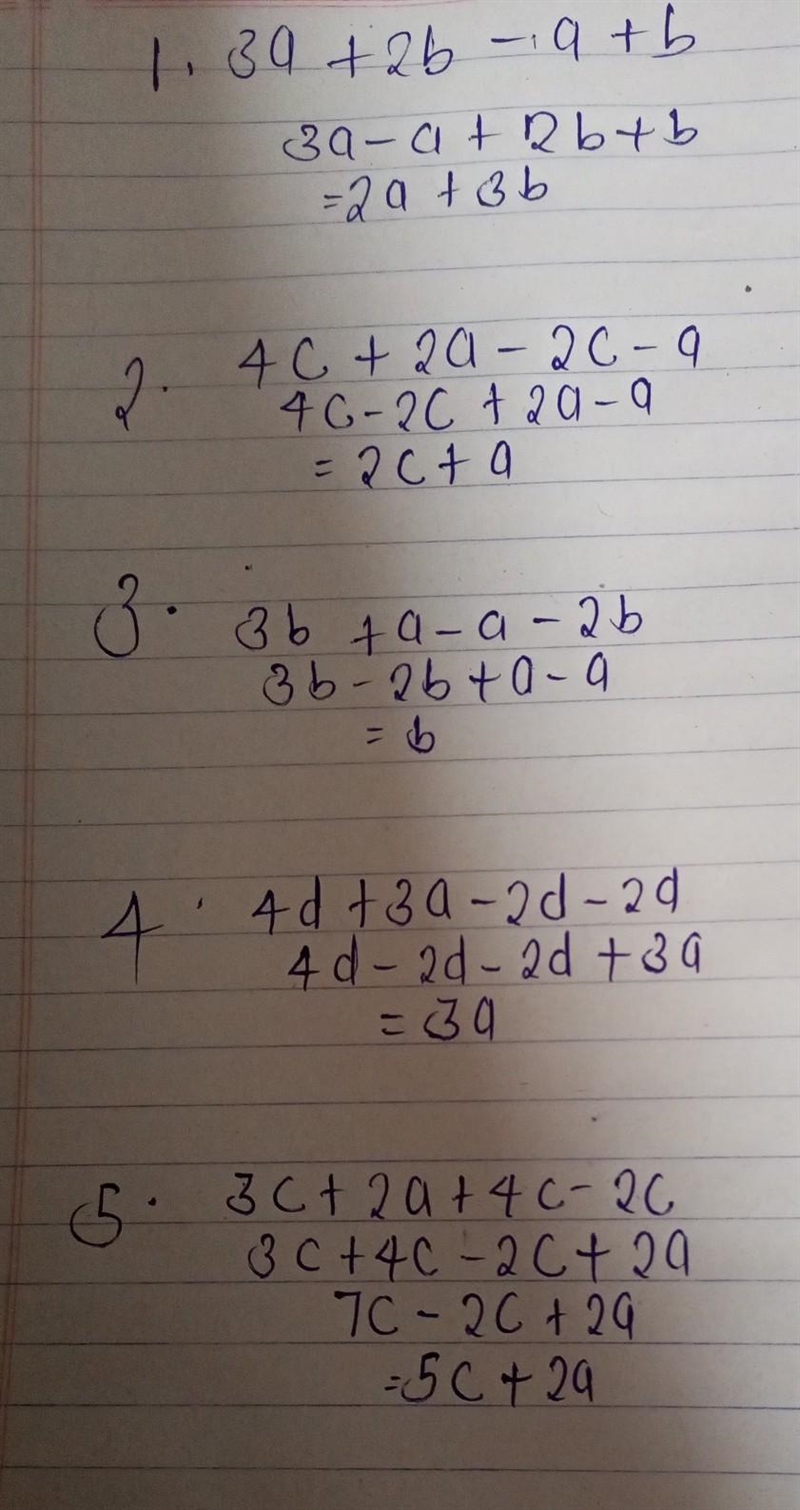 1. 3a + 2b - a + b
3a - a + 2b + b
= 2a + 3b
2. 4c + 2a - 2c - a
4c - 2c + 2a - a
= 2c + a
3. 3b + a - a - 2b
3b - 2b + a - a
= b
4. 4d + 3a - 2d - 2d
4d - 2d - 2d + 3a
= 3a
5. 3c + 2a + 4c - 2c
3c + 4c - 2c + 2a
7c - 2c + 2a
= 5c + 2a